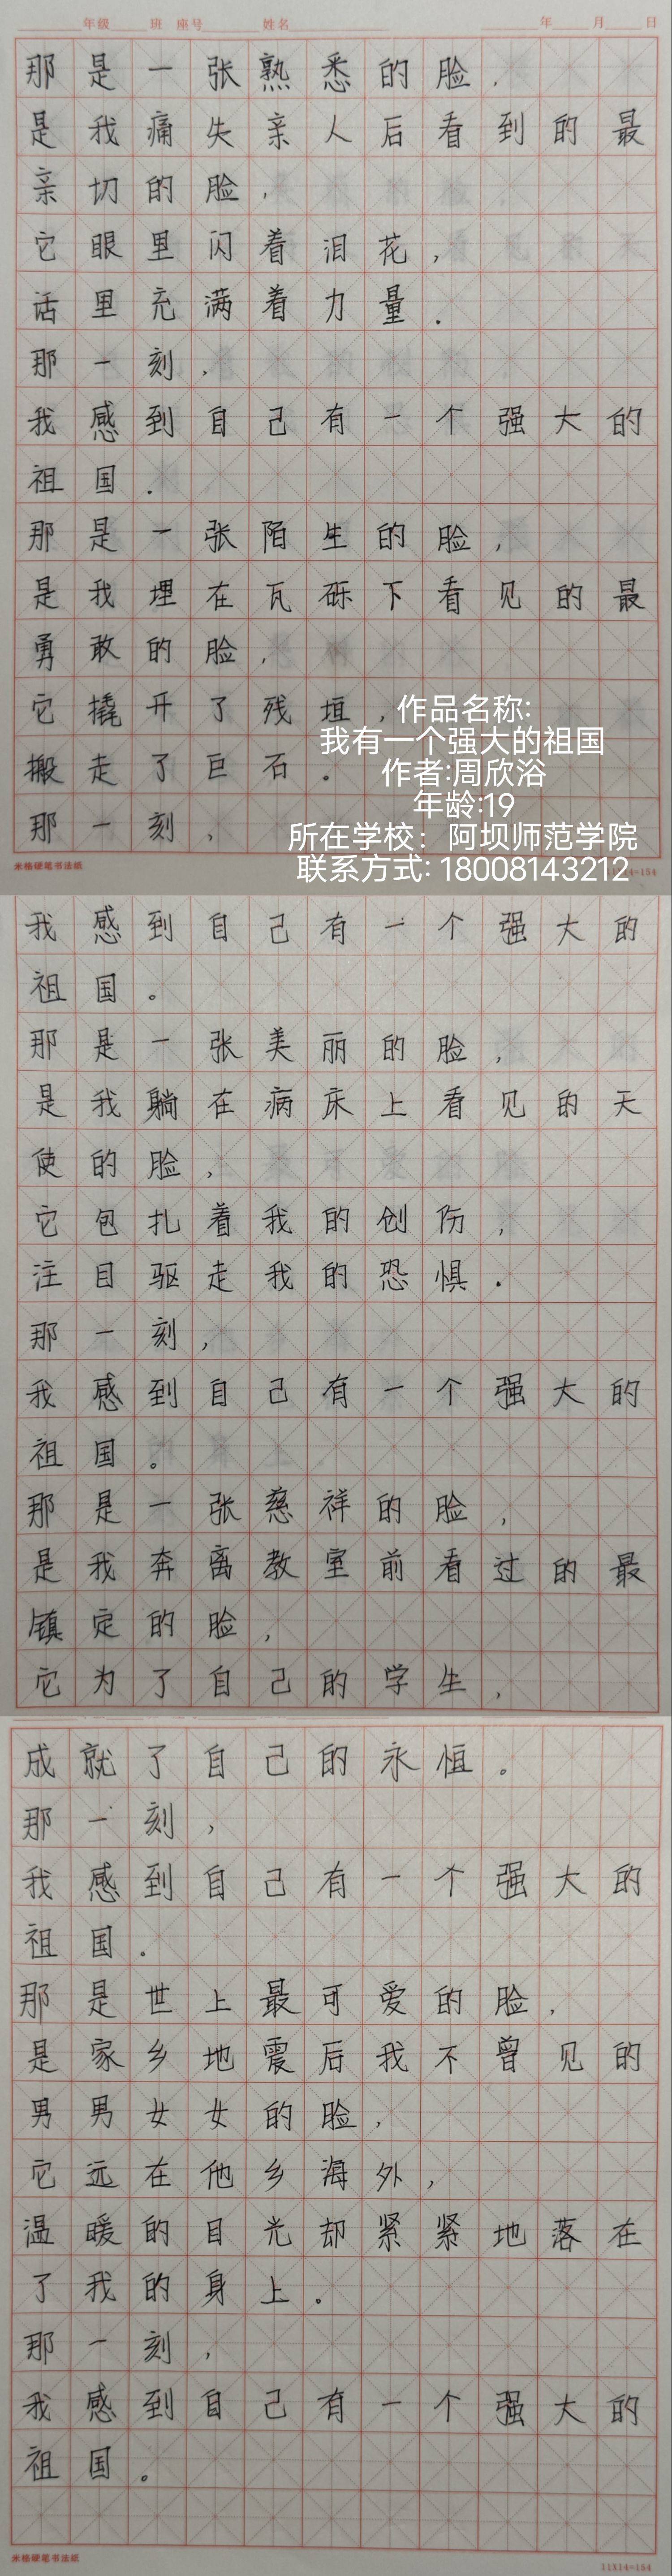 年级 班 座号 姓名 年 月 日
那是一张熟悉的脸.
是我痛失亲人后看到的最
亲切的脸,
它眼里闪着泪花,
话里充满着力量.
那一刻,
我感到自己有一个强大的
祖国.
那是一张陌生的脸,
是我埋在瓦砾下看见的最
勇敢的脸,
它撬开了残垣,
搬走了巨石.
那一刻,
作品名称:
我有一个强大的祖国
作者:周欣浴
年龄:19
所在学校：阿坝师范学院
联系方式: 18008143212
米格硬笔书法纸
我感到自己有一个强大的
祖国。
那是一张美丽的脸,
是我躺在病床上看见的天
使的脸,
它包扎着我的创伤,
注目驱走我的恐惧.
那一刻,
我感到自己有一个强大的
祖国。
那是一张慈祥的脸,
是我奔离教室前看过的最
镇定的脸,
它为了自己的学生,
成就了自己的永恒。
那一刻,
我感到自己有一个强大的
祖国.
那是世上最可爱的脸,
是家乡地震后我不曾见的
男男女女的脸,
它远在他乡海外,
温暖的目光却紧紧地落在
了我的身上。
那一刻,
我感到自己有一个强大的
祖国。
米格硬笔书法纸
11X14=154